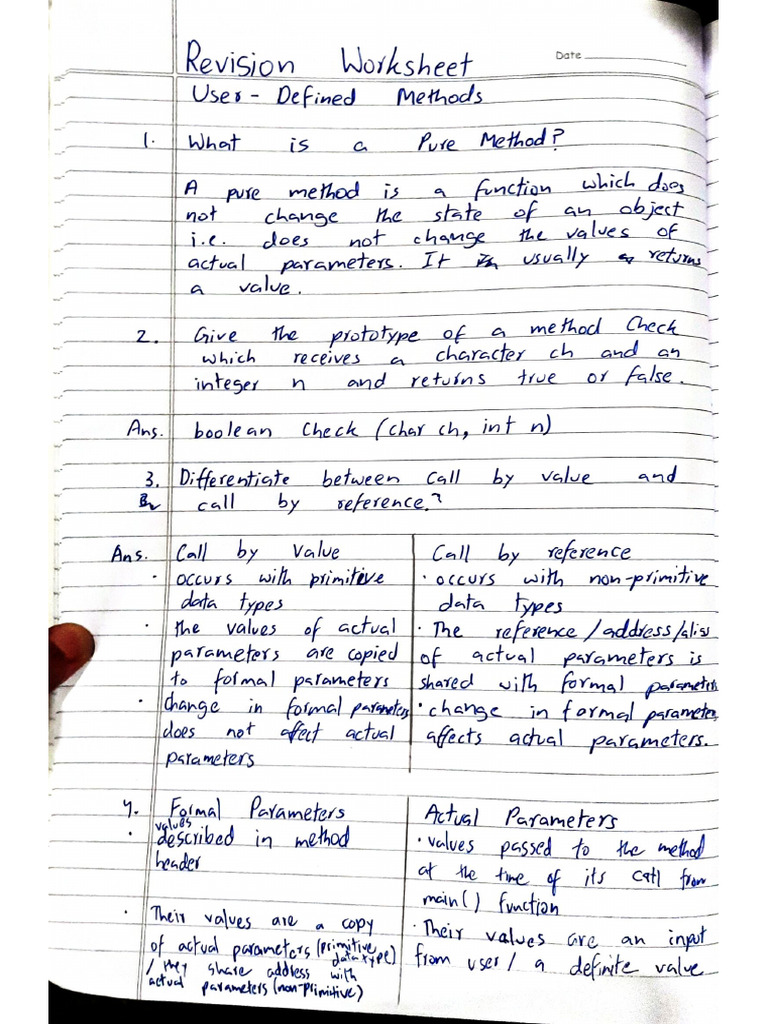 Revision Worksheet
Date
User-Defined Methods
1. What is a Pure Method?
A pure method is a function which does
not change the state of an object
i.e. does not change the values of
actual parameters. It usually returns
a value.
2. Give the prototype of a method Check
which receives a character ch and an
integer n and returns true or false.
Ans. boolean Check (char ch, int n)
3. Differentiate between call by value and
call by reference.?
Ans. Call by Value
· occurs with primitive
data types
· the values of actual
parameters are copied
to formal parameters
· change in formal parameters
does not affect actual
parameters
Call by reference
· occurs with non-primitive
data types
· The reference/address/alias
of actual parameters is
shared with formal parameters
· change in formal parameter
affects actual parameters.
4. Formal Parameters
· values described in method
header
· Their values are a copy
of actual parameters (primitive
data type)
/ they share address with
actual parameters (non-primitive)
Actual Parameters
· values passed to the method
at the time of its call from
main() function
· Their values are an input
from user / a definite value